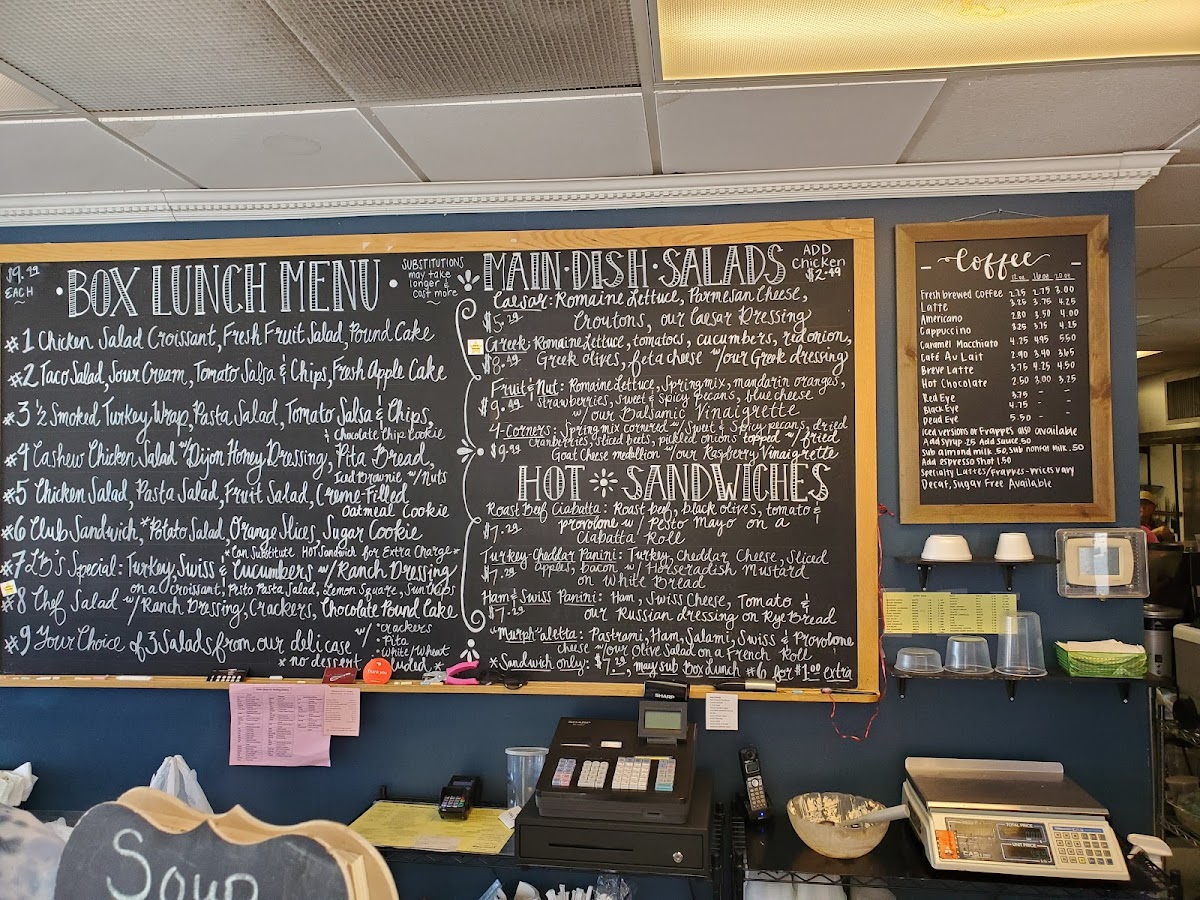 $9.29
EACH
BOX LUNCH MENU
SUBSTITUTIONS
may take
longer &
cost more
#1 Chicken Salad Croissant, Fresh Fruit Salad, Pound Cake
#2 Taco Salad, Sour Cream, Tomato Salsa & Chips, Fresh Apple Cake
#3 ½ Smoked Turkey Wrap, Pasta Salad, Tomato Salsa & Chips,
& Chocolate Chip Cookie
#4 Cashew Chicken Salad w/Dijon Honey Dressing, Pita Bread,
Iced Brownie w/Nuts
#5 Chicken Salad, Pasta Salad, Fruit Salad, Creme-Filled
Oatmeal Cookie
#6 Club Sandwich, *Potato Salad, Orange Slices, Sugar Cookie
*Can Substitute Hot Sandwich for Extra Charge*
#7 LB's Special: Turkey, Swiss & Cucumbers w/Ranch Dressing
on a croissant, Pesto Pasta Salad, Lemon Square, Sun Chips
#8 Chef Salad w/Ranch Dressing, Crackers, Chocolate Pound Cake
#9 Your Choice of 3 Salads from our deli case w/ *Crackers
*Pita
*White/Wheat
*no dessert included*
Thank you
MAIN·DISH·SALADS
ADD
chicken
$2.49
Caesar: Romaine Lettuce, Parmesan Cheese,
Croutons, our Caesar Dressing
Greek: Romaine Lettuce, tomatoes, cucumbers, red onion,
$8.99 Greek olives, feta cheese w/our Greek dressing
Fruit & Nut: Romaine Lettuce, Spring mix, mandarin oranges,
$9.99 strawberries, sweet & spicy pecans, blue cheese
w/our Balsamic Vinaigrette
4-Corners: Spring mix covered w/Sweet & Spicy pecans, dried
cranberries, sliced beets, pickled onions topped w/fried
$9.99 Goat Cheese medallion w/our Raspberry Vinaigrette
HOT SANDWICHES
Roast Beef Ciabatta: Roast beef, black olives, tomato &
$7.29 provolone w/ Pesto Mayo on a
Ciabatta Roll
Turkey-Cheddar Panini: Turkey, Cheddar Cheese, Sliced
$7.29 apples, bacon w/Horseradish Mustard
on White Bread
Ham & Swiss Panini: Ham, Swiss Cheese, Tomato &
$7.29 our Russian dressing on Rye Bread
"Murph"aletta: Pastrami, Ham, Salami, Swiss & Provolone
cheese w/our Olive Salad on a French Roll
*Sandwich only: $7.29, may sub Box Lunch #6 for $1.00 extra
Coffee
12 oz. 16 oz. 20 oz.
Fresh brewed coffee 2.25 2.79 3.00
Latte 3.25 3.75 4.25
Americano 2.80 3.50 4.00
Cappuccino 3.25 3.75 4.25
Caramel Macchiato 4.25 4.95 5.50
Café Au Lait 2.90 3.40 3.65
Breve Latte 3.75 4.25 4.50
Hot Chocolate 2.50 3.00 3.25
Red Eye 3.75 - -
Black Eye 4.75 - -
Dead Eye 5.50 - -
Iced versions or Frappes also available
Add syrup .25 Add Sauce .50
Sub almond milk .50, Sub nonfat milk .50
Add espresso shot 1.50
Specialty Lattes/Frappes - prices vary
Decaf, Sugar Free Available
SHARP
TOTAL PRICE
UNIT PRICE
Soup